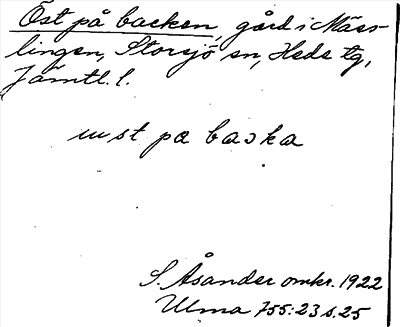 Öst på backen, gård i Mäss-
lingen, Storsjö sn, Heds tg,
Jämtl. l.
S. Åsander omkr. 1922
Ulma 755:23 s. 25